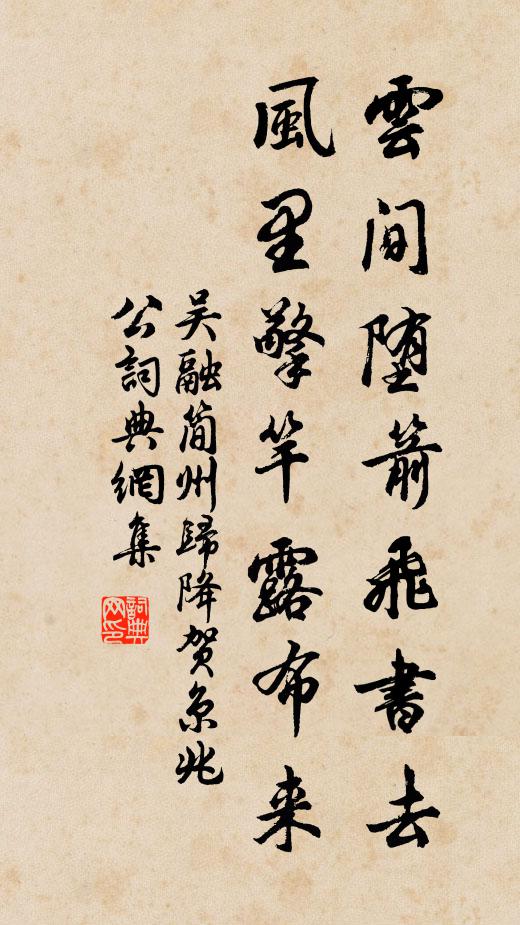 雲間堕箭飛書去
風里擎竿露布来
吳融簡州歸降賀京兆
公詞典網集
詞典网印